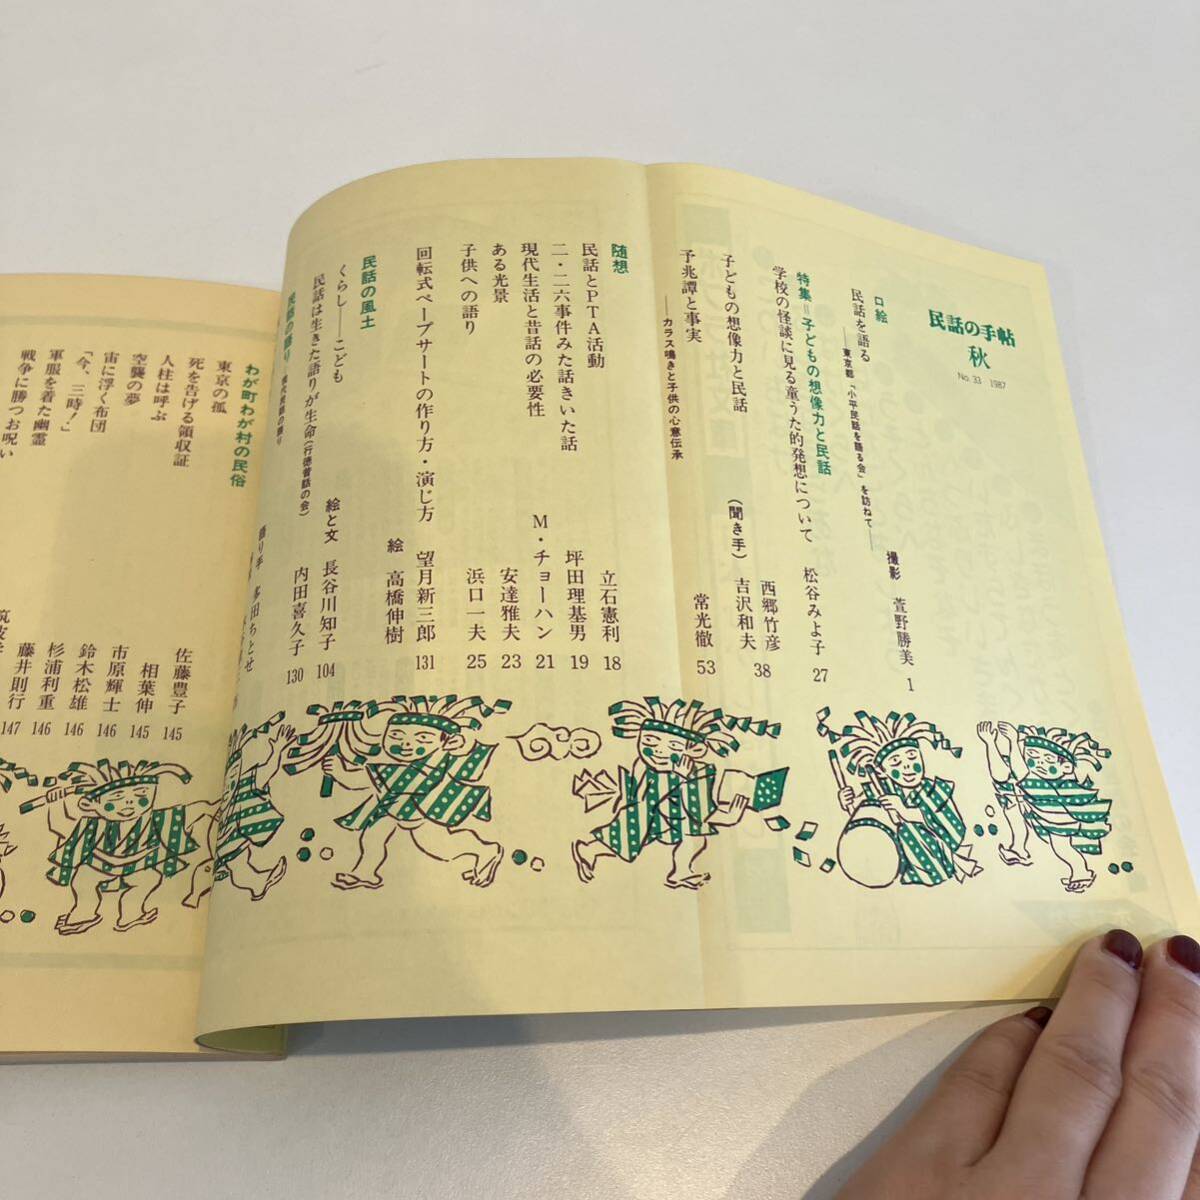 民話の手帖
秋
No. 33 1987
口絵
民話を語る
――東京都「小平民話を語る会」を訪ねて――
撮影 萱野勝美 1
特集=子どもの想像力と民話
学校の怪談に見る童うた的発想について 松谷みよ子 27
子どもの想像力と民話 西郷竹彦 38
(聞き手) 吉沢和夫
予兆譚と事実 常光徹 53
――カラス鳴きと子供の心意伝承
随想
民話とPTA活動 立石憲利 18
二・二六事件みた話きいた話 坪田理基男 19
現代生活と昔話の必要性 M・チョーハン 21
ある光景 安達雅夫 23
子供への語り 浜口一夫 25
回転式ペープサートの作り方・演じ方 望月新三郎 131
絵 高橋伸樹
民話の風土
くらし――こども 絵と文 長谷川知子 104
民話は生きた語りが生命(行徳昔話の会) 内田喜久子 130
民話の語り
語り手 多田ちとせ
わが町わが村の民俗
東京の狐 佐藤豊子 145
死を告げる領収証 相葉伸 145
人柱は呼ぶ 市原輝士 146
空襲の夢 鈴木松雄 146
宙に浮く布団 杉浦利重 146
「今、三時!」 藤井則行 147
軍服を着た幽霊
戦争に勝つお呪い